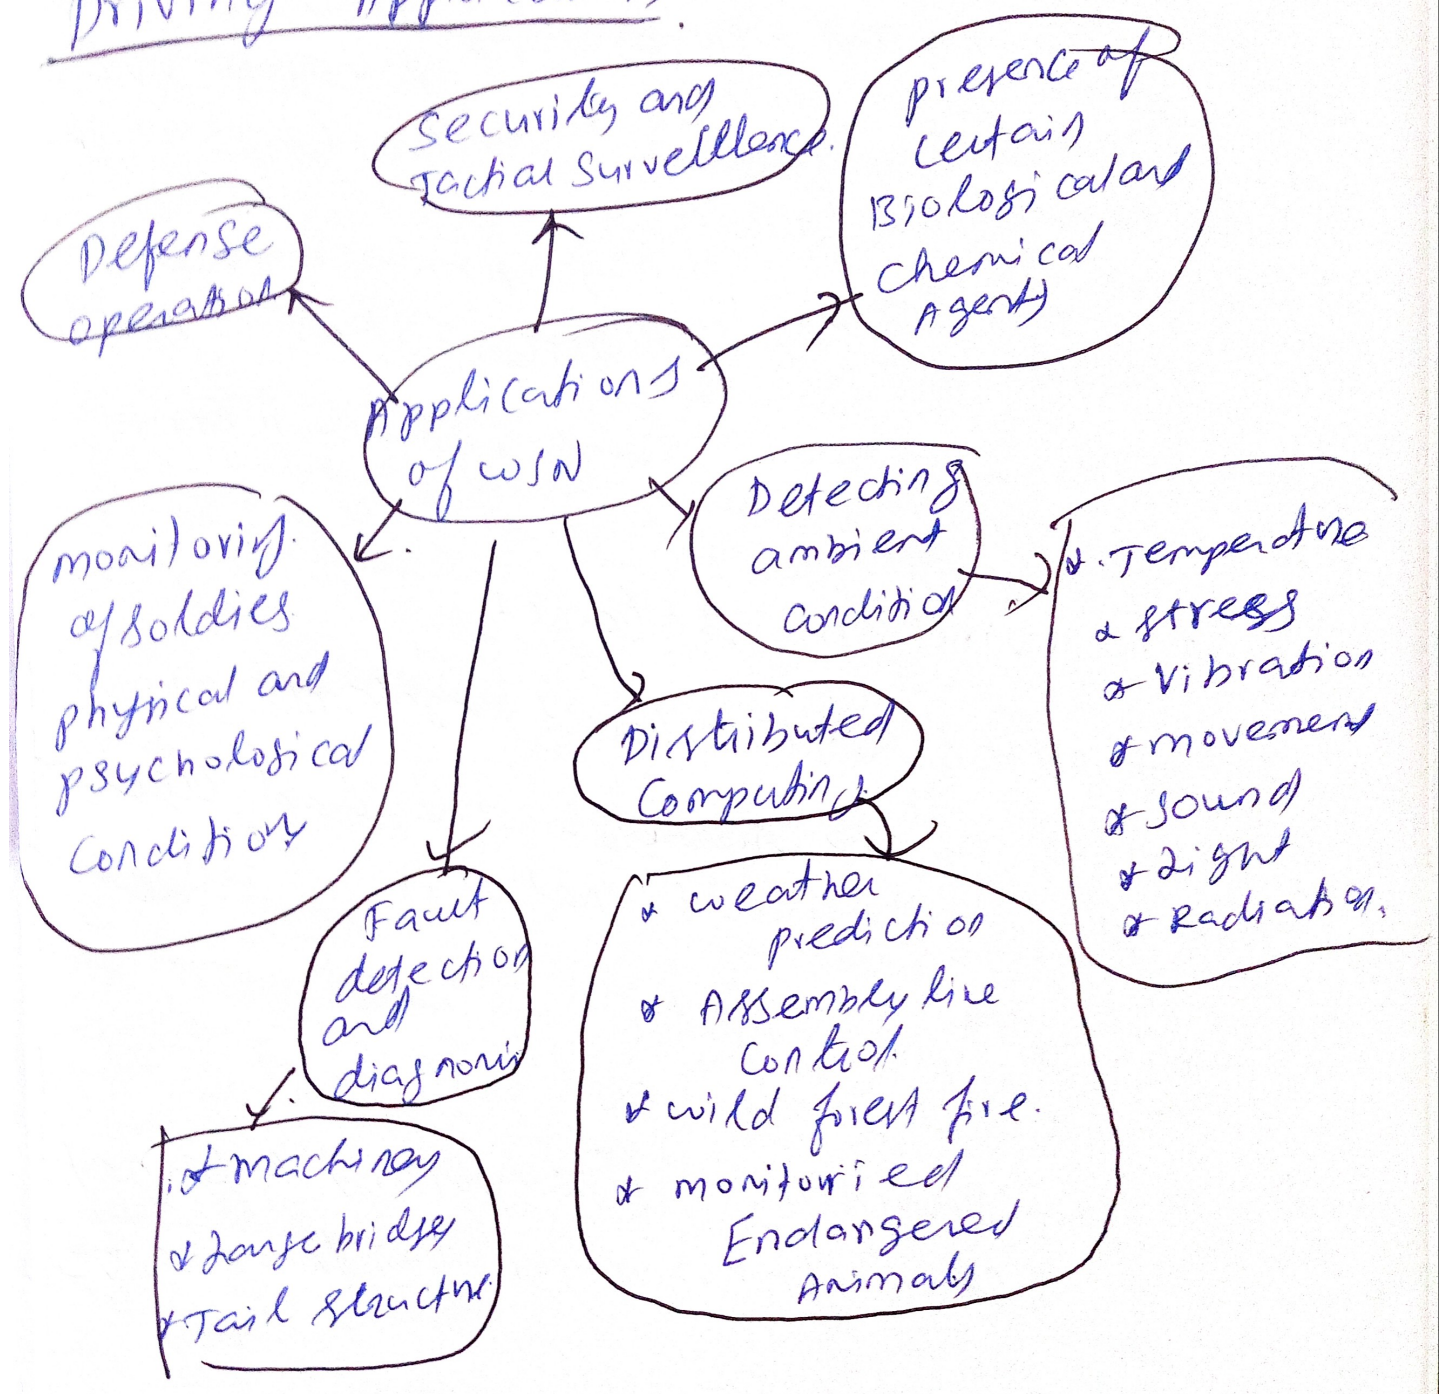 Driving Applications.
Security and
Tactial Surveillence.
presence of
certain
Biological and
chemical
Agents
Defense
operation
Applications
of WSN
Detecting
ambient
condition
* Temperature
* stress
* Vibration
* movement
* Sound
* Light
* Radiation.
monitoring
of soldies
physical and
psychological
Condition
Distributed
Computing
Fault
detection
and
diagnosis
* weather
prediction
* Assembly line
Control.
* wild forest fire.
* monitoried
Endangered
Animals
* machinery
* Large bridges
* Tail structure